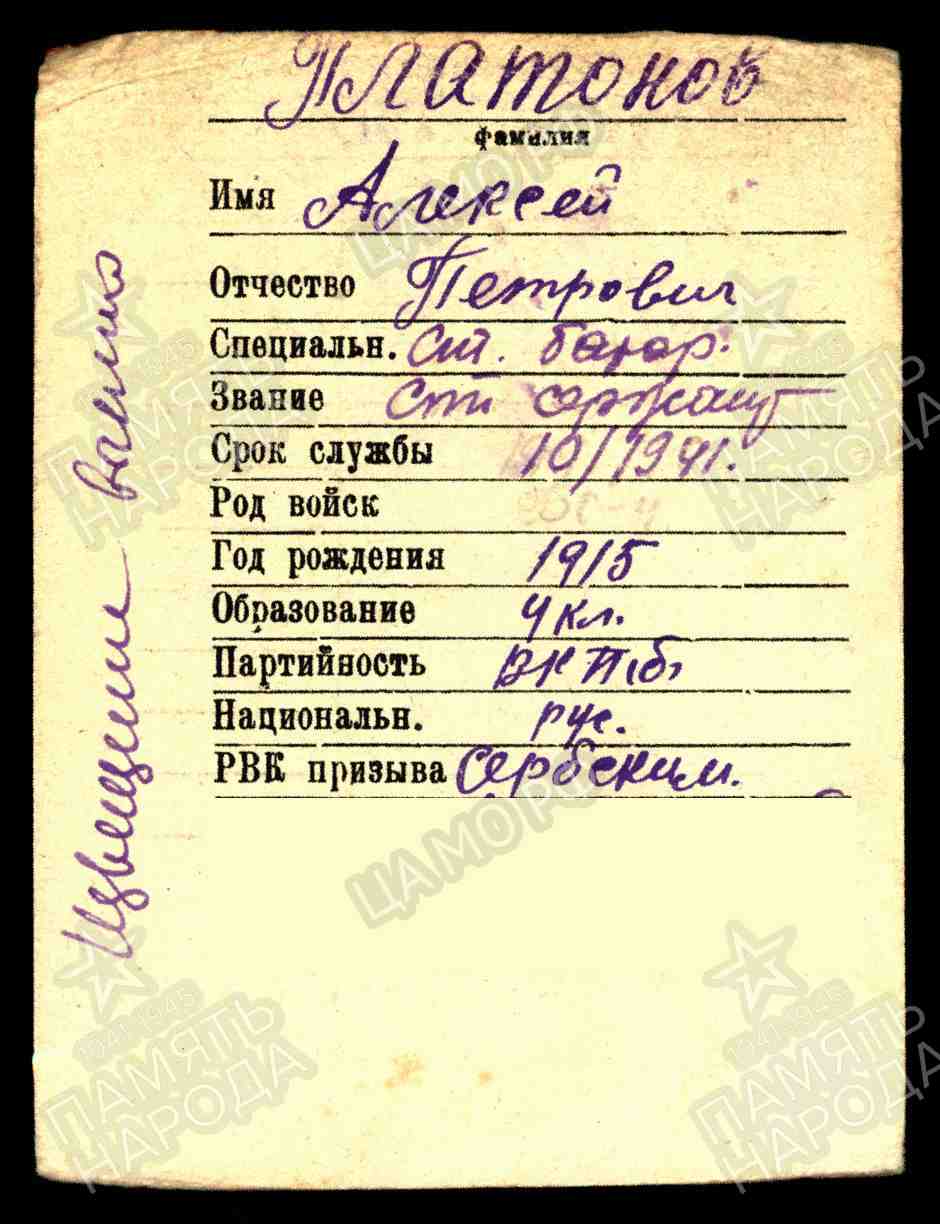 Платонов
фамилия
Имя Алексей
Отчество Петрович
Специальн. Ст. батар.
Звание Ст сержант
Срок службы 10/1941.
Род войск
Год рождения 1915
Образование 4 кл.
Партийность ВКПб
Национальн. рус.
РВК призыва Сербским.
Извещение выслано
ЦАМО РФ
ЦАМО РФ
1941-1945
ПАМЯТЬ
НАРОДА
1941-1945
ПАМЯТЬ
НАРОДА
1941-1945
ПАМЯТЬ
НАРОДА
1941-1945
ПАМЯТЬ
НАРОДА